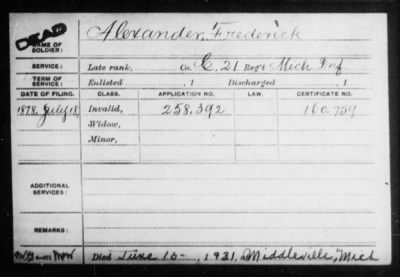 DEAD
Alexander, Frederick
NAME OF SOLDIER:
SERVICE: Late rank, Co. C, 21 Reg't Mich Inf.
TERM OF SERVICE: Enlisted , 1 Discharged , 1
DATE OF FILING. CLASS. APPLICATION NO. LAW. CERTIFICATE NO.
1878, July 18, Invalid, 258.392 160.759
Widow,
Minor,
ADDITIONAL SERVICES:
REMARKS:
Died June 15-, 1921, at Middleville, Mich